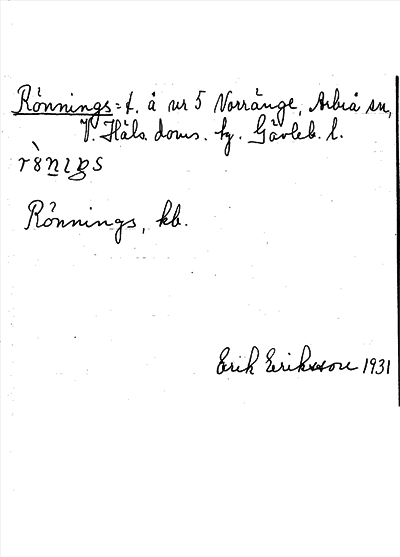 Rönnings = f. å nr 5 Norränge, Arbrå sn,
V. Häls. doms. hg. Gävleb. l.
Rönnings, kb.
Erik Eriksson 1931